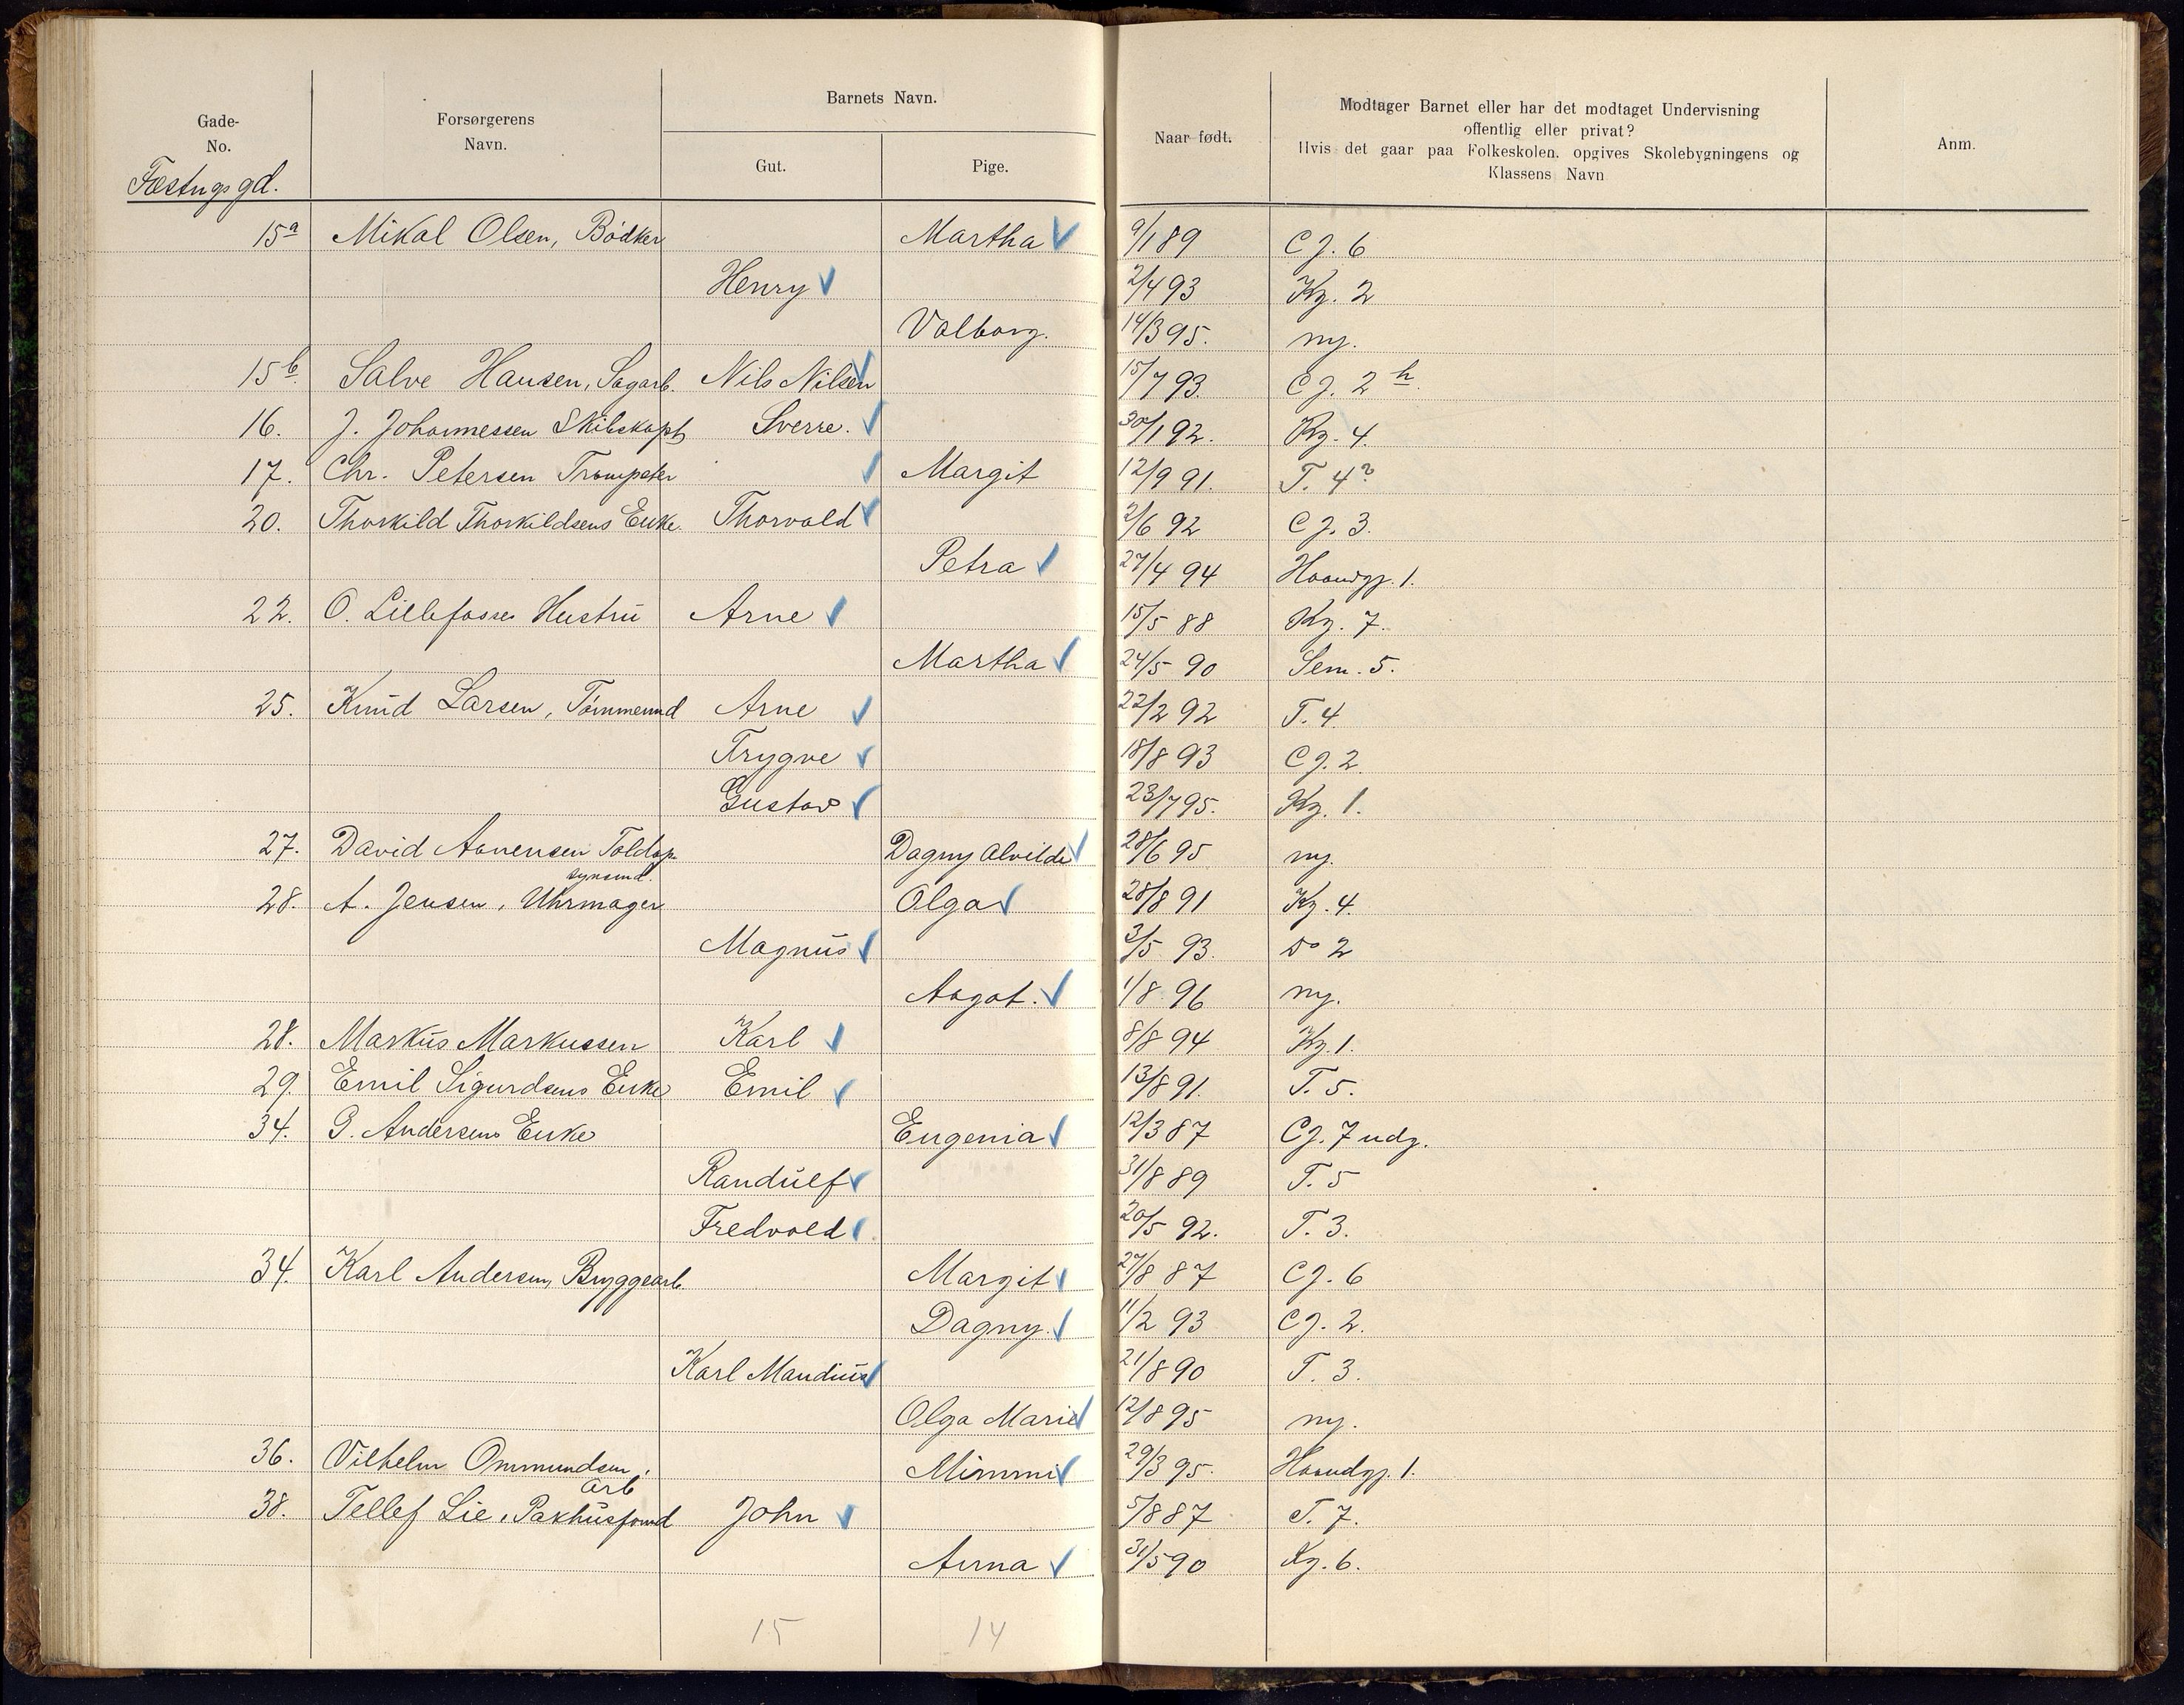 Gade-
No.
Forsørgerens
Navn.
Barnets Navn.
Gut.
Pige.
Naar født.
Modtager Barnet eller har det modtaget Undervisning
offentlig eller privat?
Hvis det gaar paa Folkeskolen, opgives Skolebygningens og
Klassens Navn
Anm.
Fæstngsgd.
15a Mikal Olsen, Bødker Martha 9/1 89 C J. 6
Henry 2/4 93 Kg. 2
Valborg. 14/3 95. ny.
15b. Salve Hansen, Sagarb. Nils Nilsen 15/7 93. C J. 2 h.
16. J. Johannessen Skibskapt Sverre. 30/1 92. Kg. 4.
17. Chr. Petersen Trompeter Margit 12/9 91. T. 4?
20. Thorkild Thorkildsens Enke. Thorvald 2/6 92 C J. 3.
Petra 27/4 94 Haandgj. 1.
22. O. Lillefosses Hustru Arne 15/5 88 Kg. 7.
Martha 24/5 90 Sem. 5.
25. Knud Larsen, Tømmermd Arne 22/2 92 T. 4.
Trygve 18/8 93 C J. 2.
Gustav 23/7 95. Kg. 1.
27. David Aanensen Toldop- Dagny Alvilde 28/6 95 ny.
synsmd.
28. A. Jensen, Uhrmager Olga 28/8 91 Kg. 4.
Magnus 3/5 93. Do 2
Aagot. 1/8 96 ny.
28. Markus Markussen Karl 8/8 94 Kg. 1.
29. Emil Sigurdsens Enke Emil 13/8 91. T. 5.
34. G. Andersens Enke Eugenia 12/3 87 CJ. 7 udg.
Randulf 31/8 89 T. 5
Fredvold 20/5 92. T. 3.
34. Karl Andersen, Bryggearb Margit 27/8 87 CJ. 6
Dagny. 11/2 93 CJ. 2.
Karl Mandius 21/8 90 T. 3.
Olga Marie 12/8 95 ny.
36. Vilhelm Ommundsen, Mimmi 29/3 95. Haandgj. 1.
Arb
38. Tellef Lie, Pakhusformd John 5/8 87 T. 7.
Anna 31/5 90 Kg. 6.
15 14